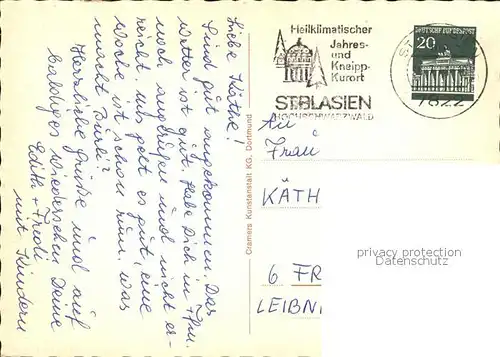 Liebe Käthe!
Sind gut angekommen. Das
Wetter ist gut. Habe Dich in Ffm.
noch angerufen und nicht er-
reicht. Uns geht es gut, eine
Woche ist schon rum. Was
macht Purli?
Herzliche Grüße und auf
baldiges Wiedersehen Deine
Edith + Friedl
mit Kindern
Cramers Kunstanstalt KG. Dortmund
Heilklimatischer
Jahres-
und
Kneipp-
Kurort
ST.BLASIEN
HOCHSCHWARZWALD
DEUTSCHE BUNDESPOST
20
ST
7822
An
Frau
KÄTH
6 FR
LEIBNI
privacy protection
Datenschutz